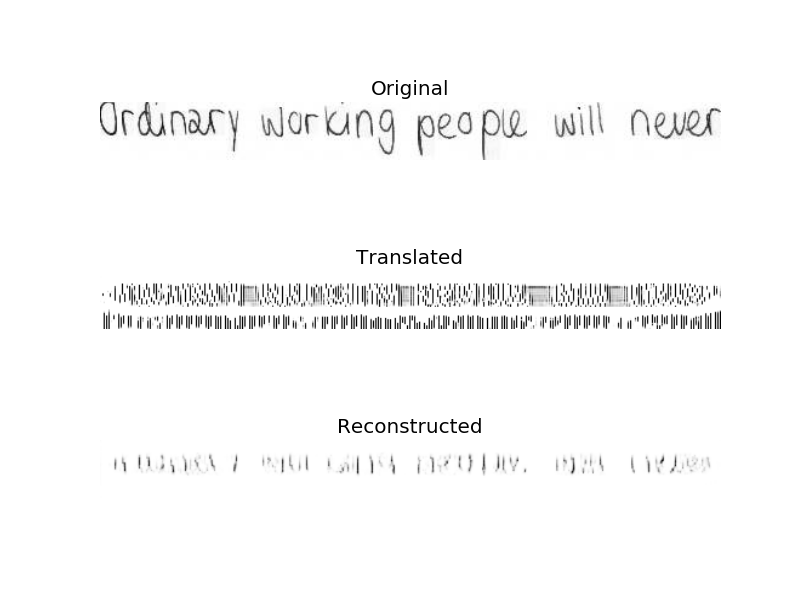 Original
Ordinary working people will never
Translated
Reconstructed